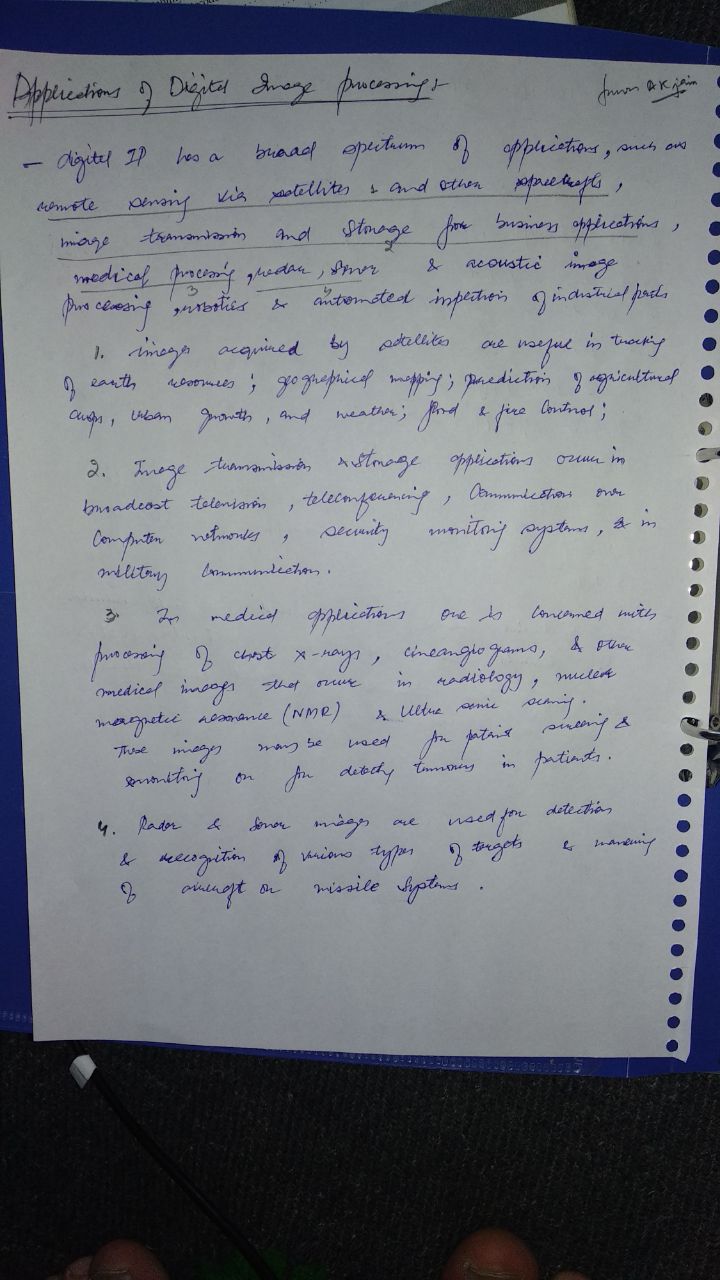 Applications of Digital Image processing:-
from AK jain
- digital IP has a broad spectrum of applications, such as
remote sensing via satellites & and other spacecrafts,
image transmission and storage for business applications,
2
medical processing, radar, Sonar & acoustic image
3 4
processing, robotics & automated inspection of industrial parts
1. images acquired by satellites are useful in tracking
of earth resources; geographical mapping; prediction of agricultural
crops, urban growth, and weather; flood & fire Control;
2. Image transmission & Storage applications occur in
broadcast television, teleconferencing, Communication over
Computer networks, security monitoring systems, & in
military Communication.
3. In medical applications one is Concerned with
processing of chest x-rays, cineangiograms, & other
medical images that occur in radiology, nuclear
magnetic resonance (NMR) & Ultra sonic
These images may be used for patient screening &
monitoring or for tumours in patients.
4. Radar & Sonar images are used for detection
& recognition of various types of targets &
of aircraft or missile Systems.